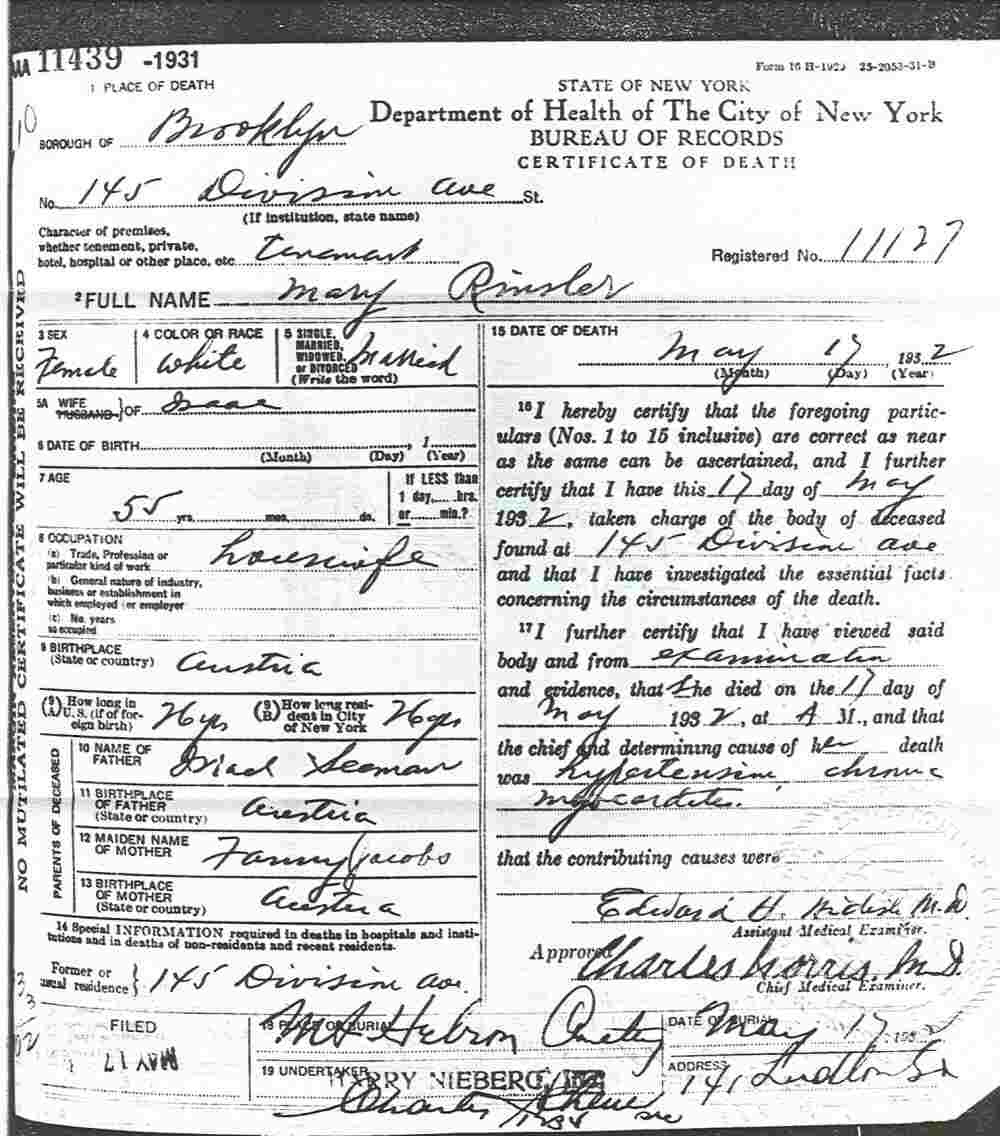 11439 -1931
Form 16 H-1929 25-2053-31-B
1 PLACE OF DEATH
STATE OF NEW YORK
Department of Health of The City of New York
BUREAU OF RECORDS
CERTIFICATE OF DEATH
BOROUGH OF Brooklyn
No. 145 Division ave St.
(If institution, state name)
Character of premises,
whether tenement, private,
hotel, hospital or other place, etc. tenement
Registered No. 11127
2 FULL NAME Mary Rinsler
3 SEX Female
4 COLOR OR RACE White
5 SINGLE, MARRIED, WIDOWED, or DIVORCED (Write the word) Married
5A WIFE HUSBAND } OF Isaac
6 DATE OF BIRTH , 1
(Month) (Day) (Year)
7 AGE
55 yrs. mos. ds.
If LESS than
1 day, hrs.
or min.?
8 OCCUPATION
(a) Trade, Profession or
particular kind of work housewife
(b) General nature of industry,
business or establishment in
which employed (or employer
(c) No. years
so occupied
9 BIRTHPLACE
(State or country) Austria
(9) (A) How long in U.S. (if of foreign birth)
(9) (B) How long resident in City of New York
PARENTS OF DECEASED
10 NAME OF
FATHER Seaman
11 BIRTHPLACE
OF FATHER
(State or country) Austria
12 MAIDEN NAME
OF MOTHER Fanny Jacobs
13 BIRTHPLACE
OF MOTHER
(State or country) Austria
14 Special INFORMATION required in deaths in hospitals and insti-
tutions and in deaths of non-residents and recent residents.
Former or
usual residence } 145 Division ave.
15 DATE OF DEATH
May 17 1932
(Month) (Day) (Year)
16 I hereby certify that the foregoing partic-
ulars (Nos. 1 to 15 inclusive) are correct as near
as the same can be ascertained, and I further
certify that I have this 17 day of May
1932, taken charge of the body of deceased
found at 145 Division ave
and that I have investigated the essential facts
concerning the circumstances of the death.
17 I further certify that I have viewed said
body and from examination
and evidence, that She died on the 17 day of
May 1932, at A M., and that
the chief and determining cause of her death
was hypertension chronic
myocarditis.
that the contributing causes were
Edward H. M.D.
Assistant Medical Examiner.
Approved Charles Norris, M.D.
Chief Medical Examiner.
FILED
MAY 17
18 PLACE OF BURIAL
Mt Hebron Cemetery
DATE OF BURIAL
May 17 1932
19 UNDERTAKER
HARRY NIEBERG, INC
Charles
ADDRESS
141 Ludlow St
NO MUTILATED CERTIFICATE WILL BE RECEIVED